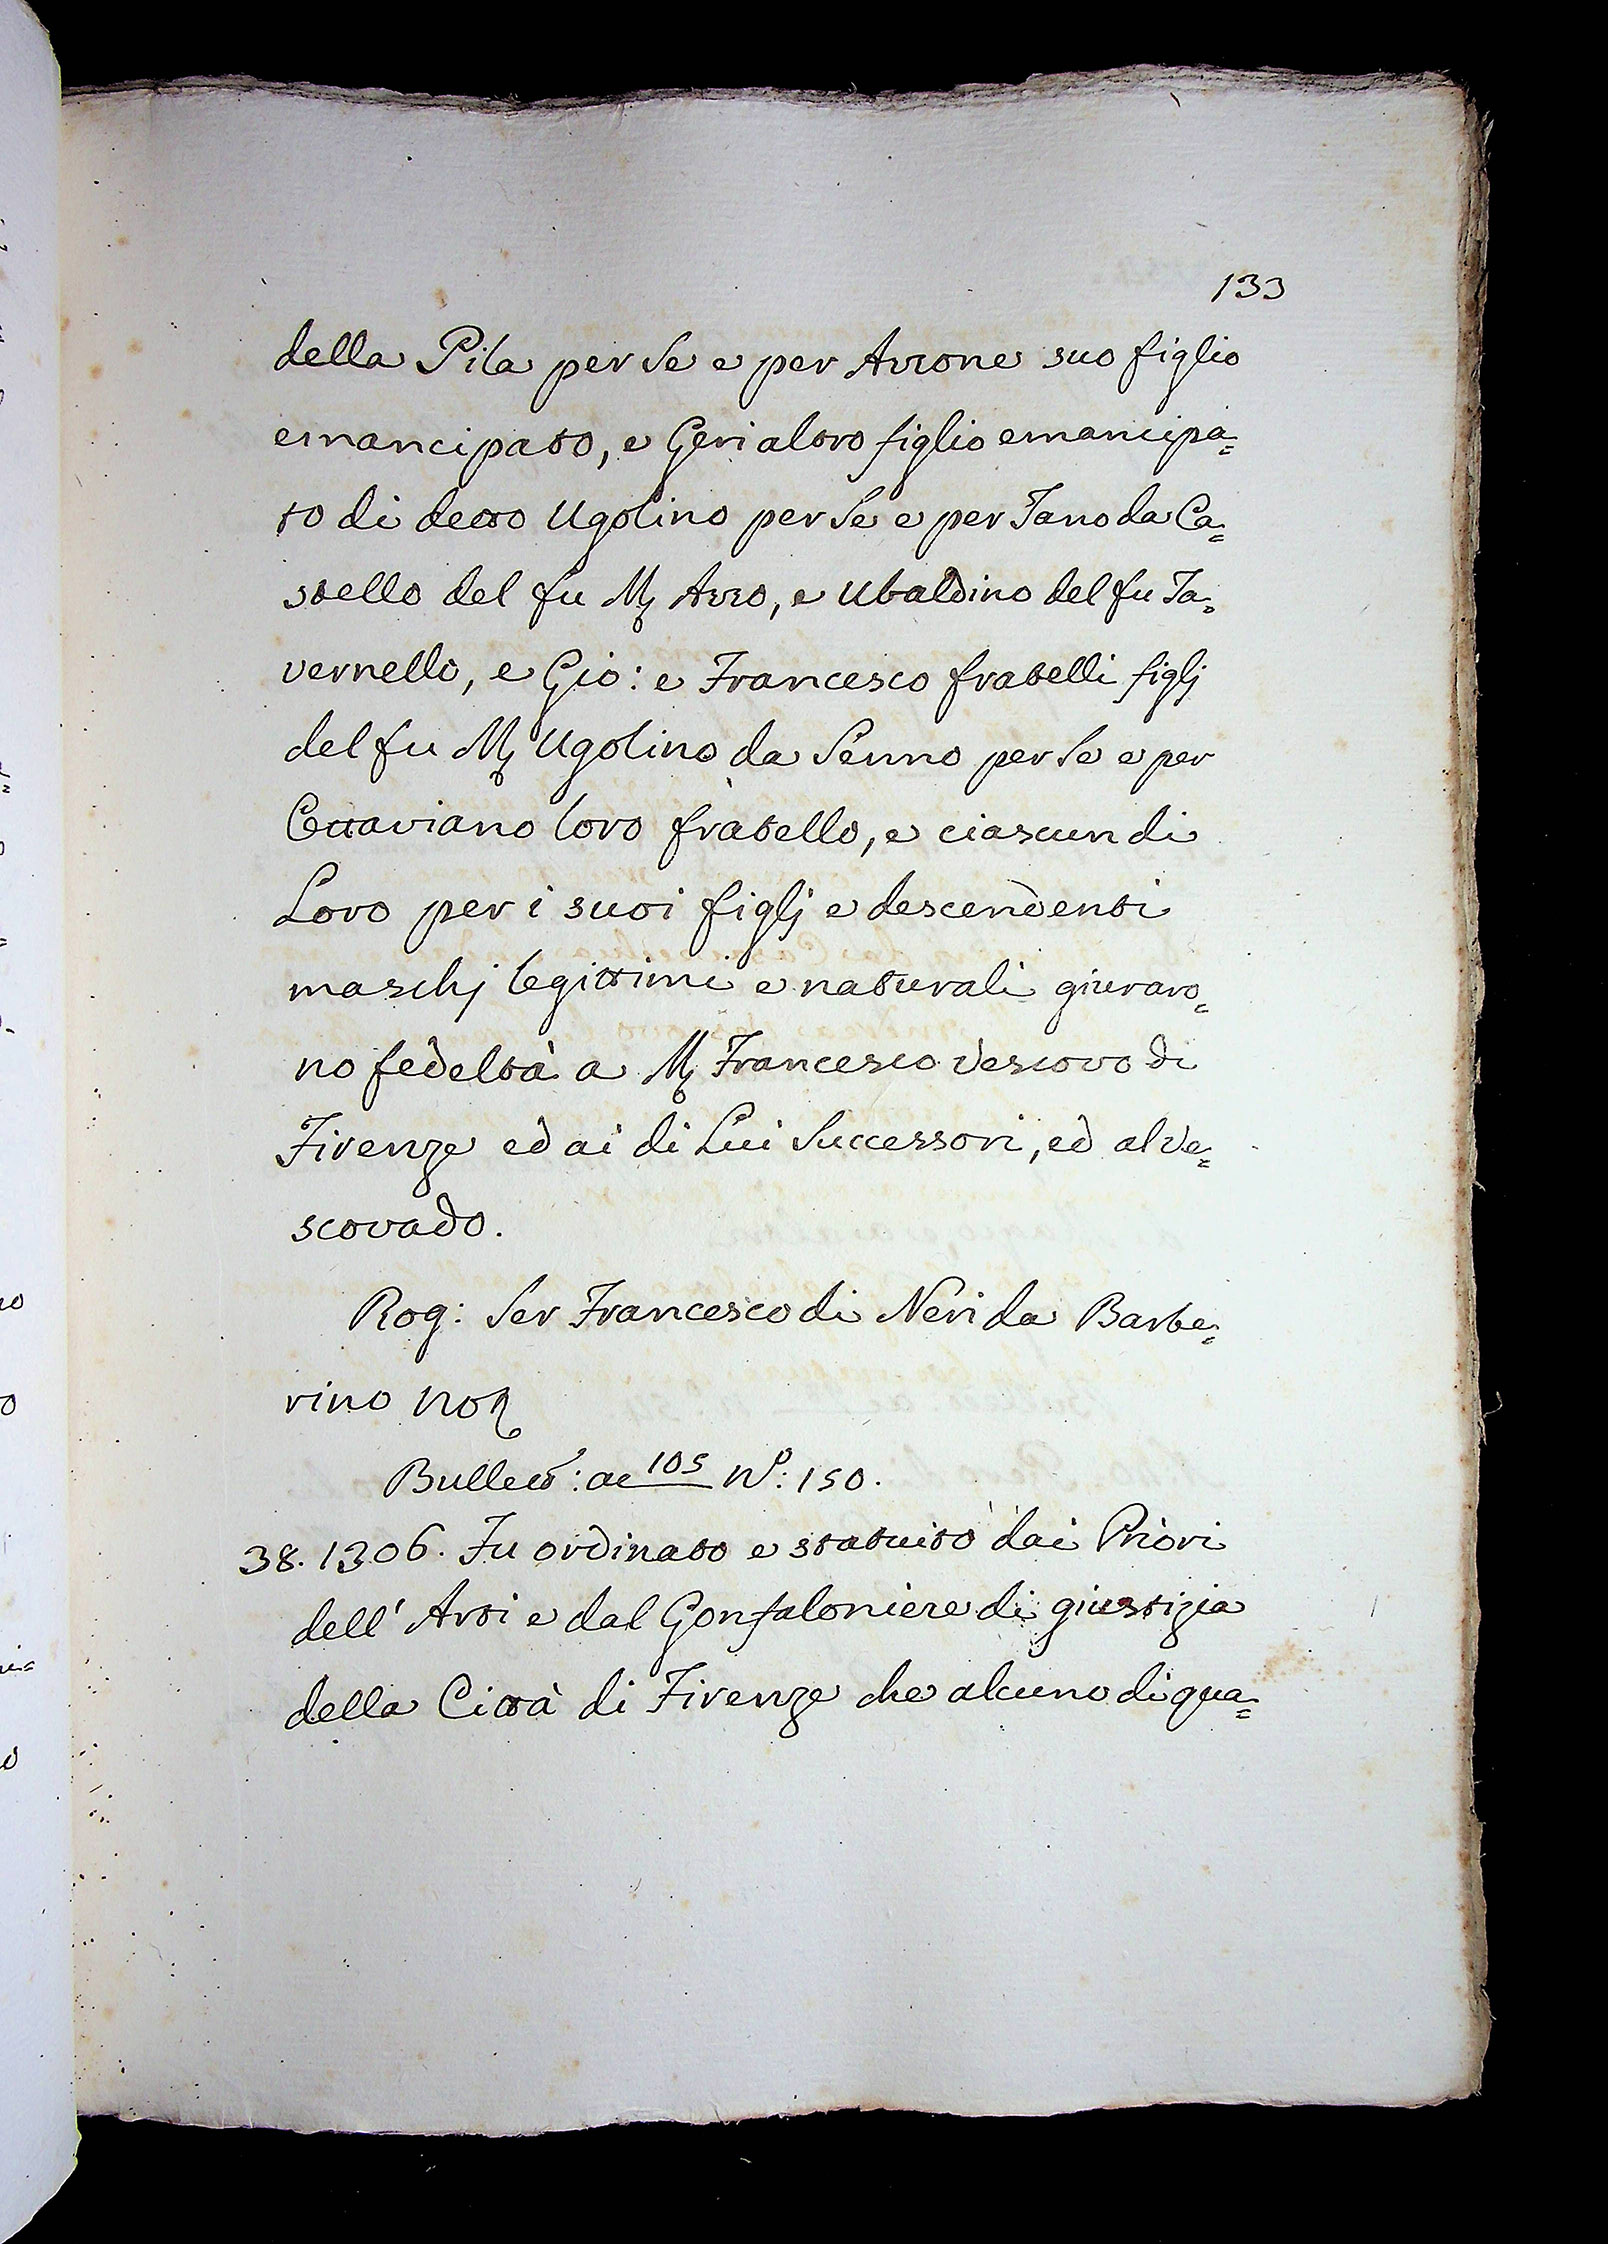 133
della Pila per se e per Azzone suo figlio
emancipato, e Geri altro figlio emancipa=
to di detto Ugolino per se e per Tano da Ca=
stello del fu M Azzo, e Ubaldino del fu Ta=
vernello, e Gio: e Francesco fratelli figlj
del fu M Ugolino da Senno per se e per
Ottaviano loro fratello, e ciascun di
Loro per i suoi figlj e descendenti
maschj legittimi e naturali giuraro=
no fedeltà a M Francesco Vescovo di
Firenze ed ai di Lui Successori, ed al Ve=
scovado.
Rog: Ser Francesco di Neri da Barbe=
rino Not
Bullett: ac 105 No: 150.
38. 1306. Fu ordinato e statuito dai Priori
dell' Arti e dal Gonfaloniere di giustizia
della Città di Firenze che alcuno di qua=